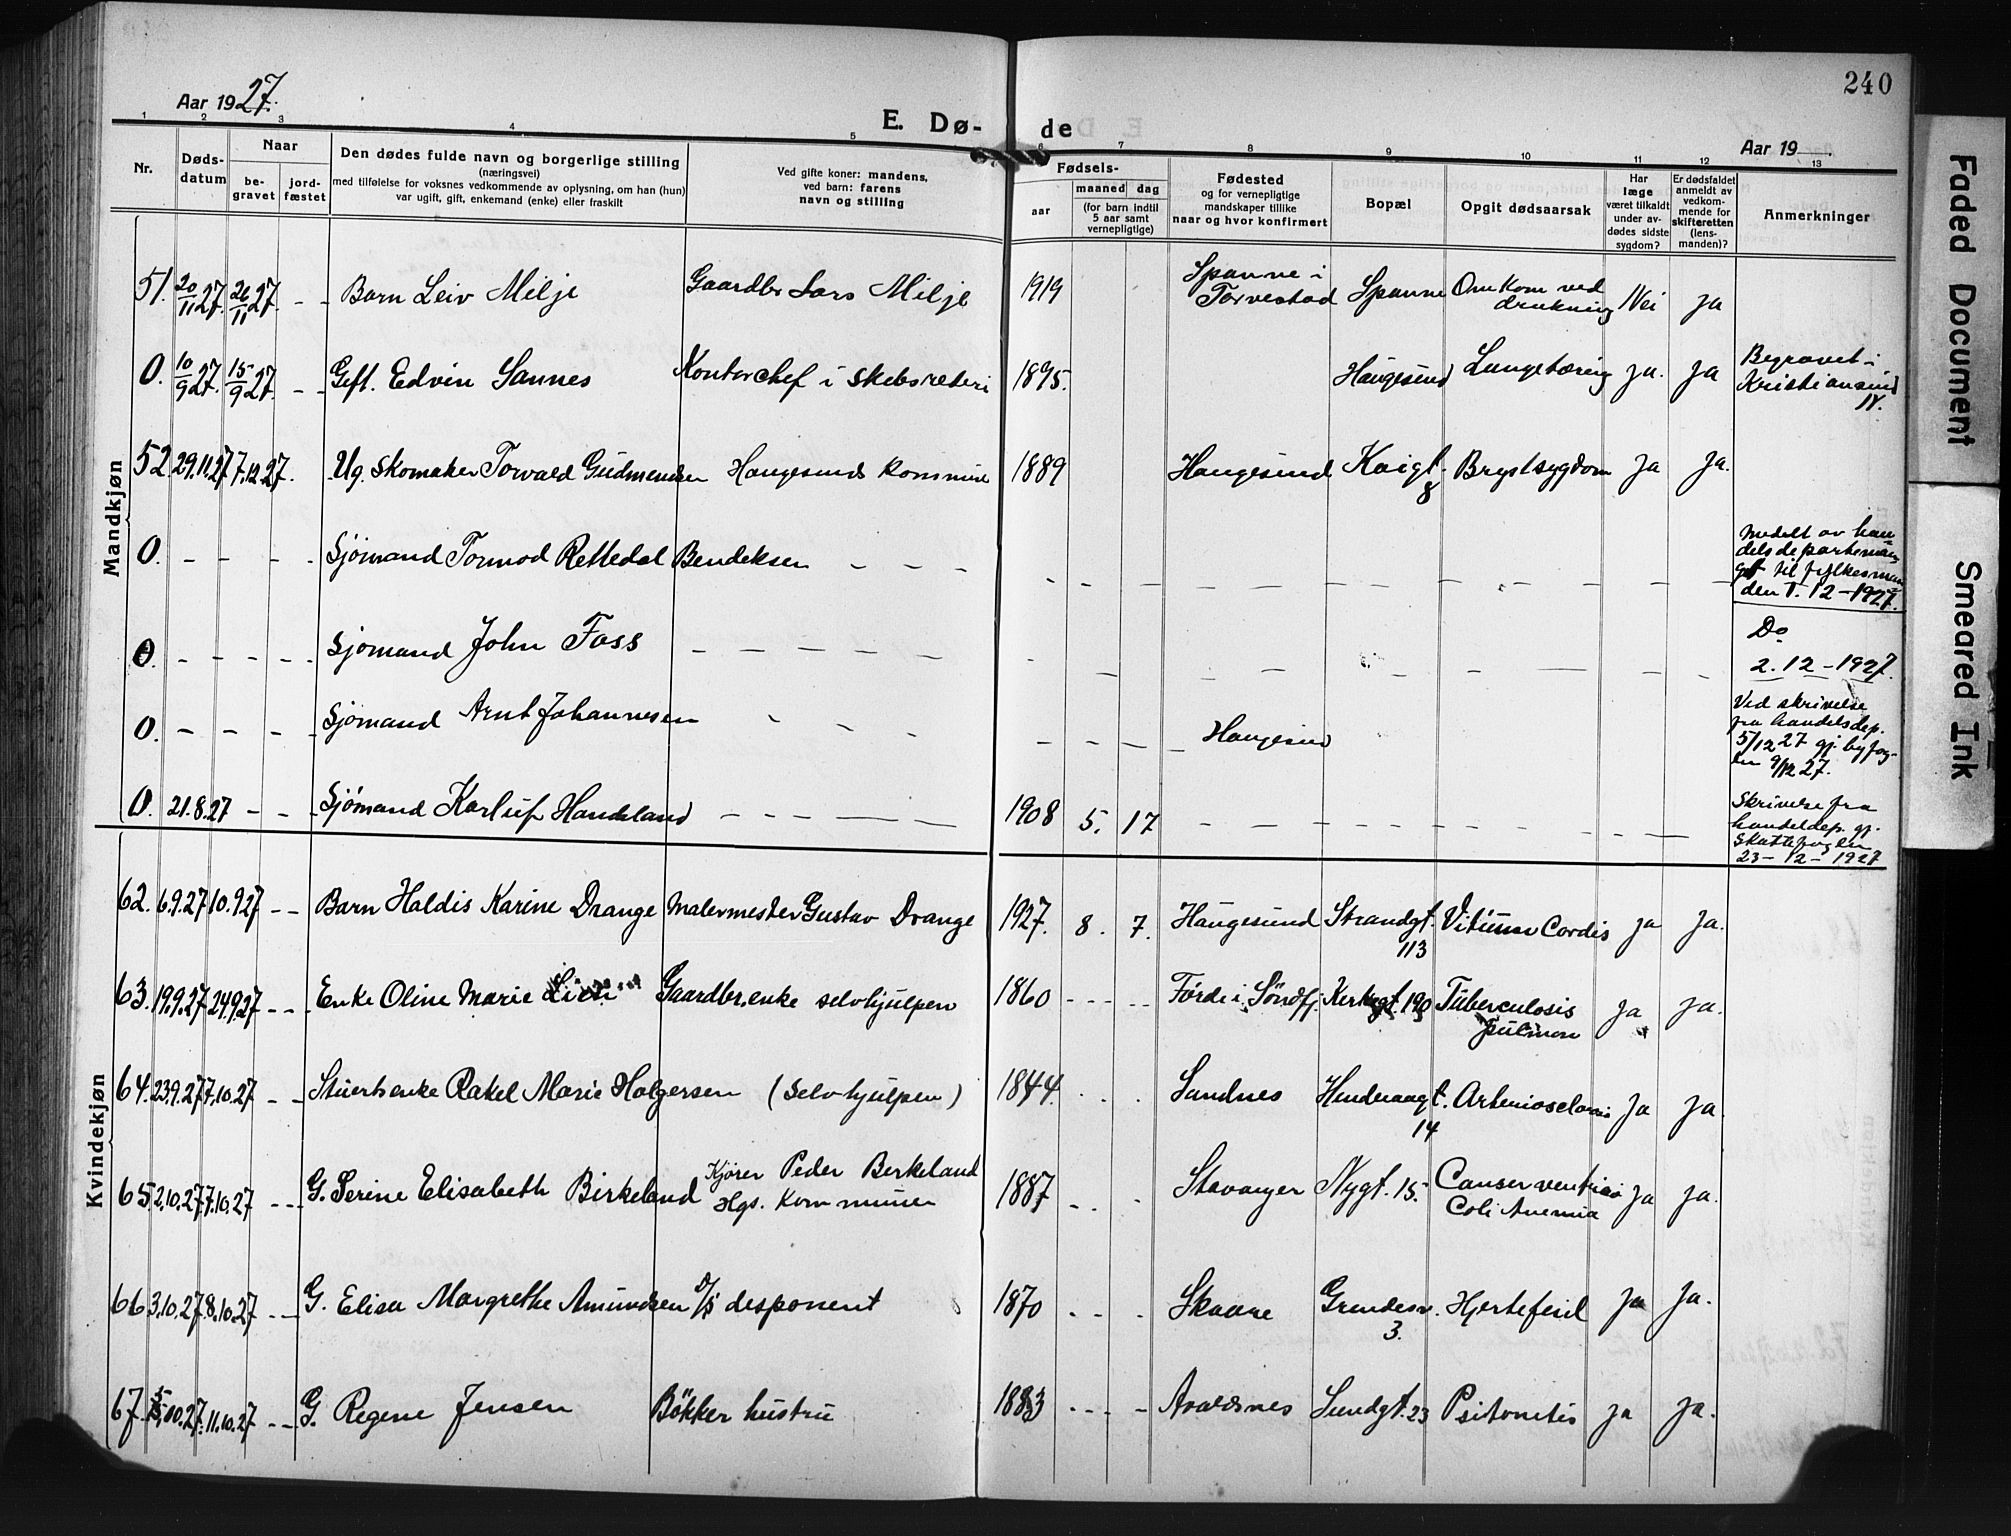 240
Aar 1927.
E. Dø-
de
Aar 19
1 2 3 4 5 6 7 8 9 10 11 12 13
Nr.
Døds-
datum
Naar
be-
gravet
jord-
fæstet
Den dødes fulde navn og borgerlige stilling
(næringsvei)
med tilføielse for voksnes vedkommende av oplysning, om han (hun)
var ugift, gift, enkemand (enke) eller fraskilt
Ved gifte koner: mandens,
ved barn: farens
navn og stilling
Fødsels-
aar
maaned dag
(for barn indtil
5 aar samt
vernepligtige)
Fødested
og for vernepligtige
mandskaper tillike
naar og hvor konfirmert
Bopæl
Opgit dødsaarsak
Har
læge
været tilkaldt
under av-
dødes sidste
sygdom?
Er dødsfaldet
anmeldt av
vedkom-
mende for
skifteretten
(lens-
manden)?
Anmerkninger
Mandkjøn
51. 20/11 27. 26/11 27. - - Barn Leiv Milje Gaardbr Lars Milje 1919 Spanne i
Torvestad Spanne Omkom ved
drukning Nei ja
0. 10/9 27. 15/9 27. - - Gift. Edvin Sannes Kontorchef i Skibsrederi 1895. Haugesund Lungetæring ja. ja Begravet i
Kristiansund
N.
52. 29.11.27 7.12.27. Ug. Skomaker Torvald Gudmundsen Haugesunds kommune 1889 Haugesund Kaigt.
8 Brystsygdom ja ja.
0. - - - - Sjömand Tormod Rettedal Bendeksen - - - Medelt av han-
delsdeparteman
get til fylkesman
den 1. 12 - 1927.
0. - - - - Sjömand John Foss - - - - - Do
2. 12 - 1927.
0. - - - - Sjömand Arnt Johannesen - - - Haugesund Ved skrivelse
fra handelsdep.
5/12 27 gj. byfog-
den 9/12 27.
0. 21.8.27 - - - Sjömand Karluf Handeland - - - - - 1908 5. 17 - - - Skrivelse fra
handeldep. gj.
Skattefogden
23 - 12 - 1927
Kvindekjøn
62. 6.9.27 10.9.27 - - Barn Haldis Karine Drange Malermester Gustav Drange 1927. 8. 7. Haugesund Strandgt.
113 Vitium Cordis ja ja.
63. 19.9.27 24.9.27 - - Enke Oline Marie Gaardbr.enke selvhjulpen 1860 - - - - Förde i Söndfj. Kirkegt. 190 Tuberculosis
pulmon ja ja.
64. 23.9.27 7.10.27 - - Stuertsenke Rakel Marie Holgersen (Selvhjulpen) 1844. - - - Sandnes
14 ja ja.
65 2.10.27 7.10.27 - - - G. Serine Elisabeth Birkeland Kjörer Peder Birkeland
Hgs. Kommunen 1887 - - - Stavanger Nygt. 15. Canser ventric
Coli Anemia ja ja.
66 3.10.27 8.10.27 - - - G. Elisa Margrethe Amundsen D/s desponent 1870 - - - Skaare
3. Hjertefeil ja ja.
67. 5.10.27. 11.10.27 - - G. Regine Jensen Bökker hustru 1883 - - - - Avaldsnes Sundgt. 23 ja ja.
Faded Document
Smeared Ink